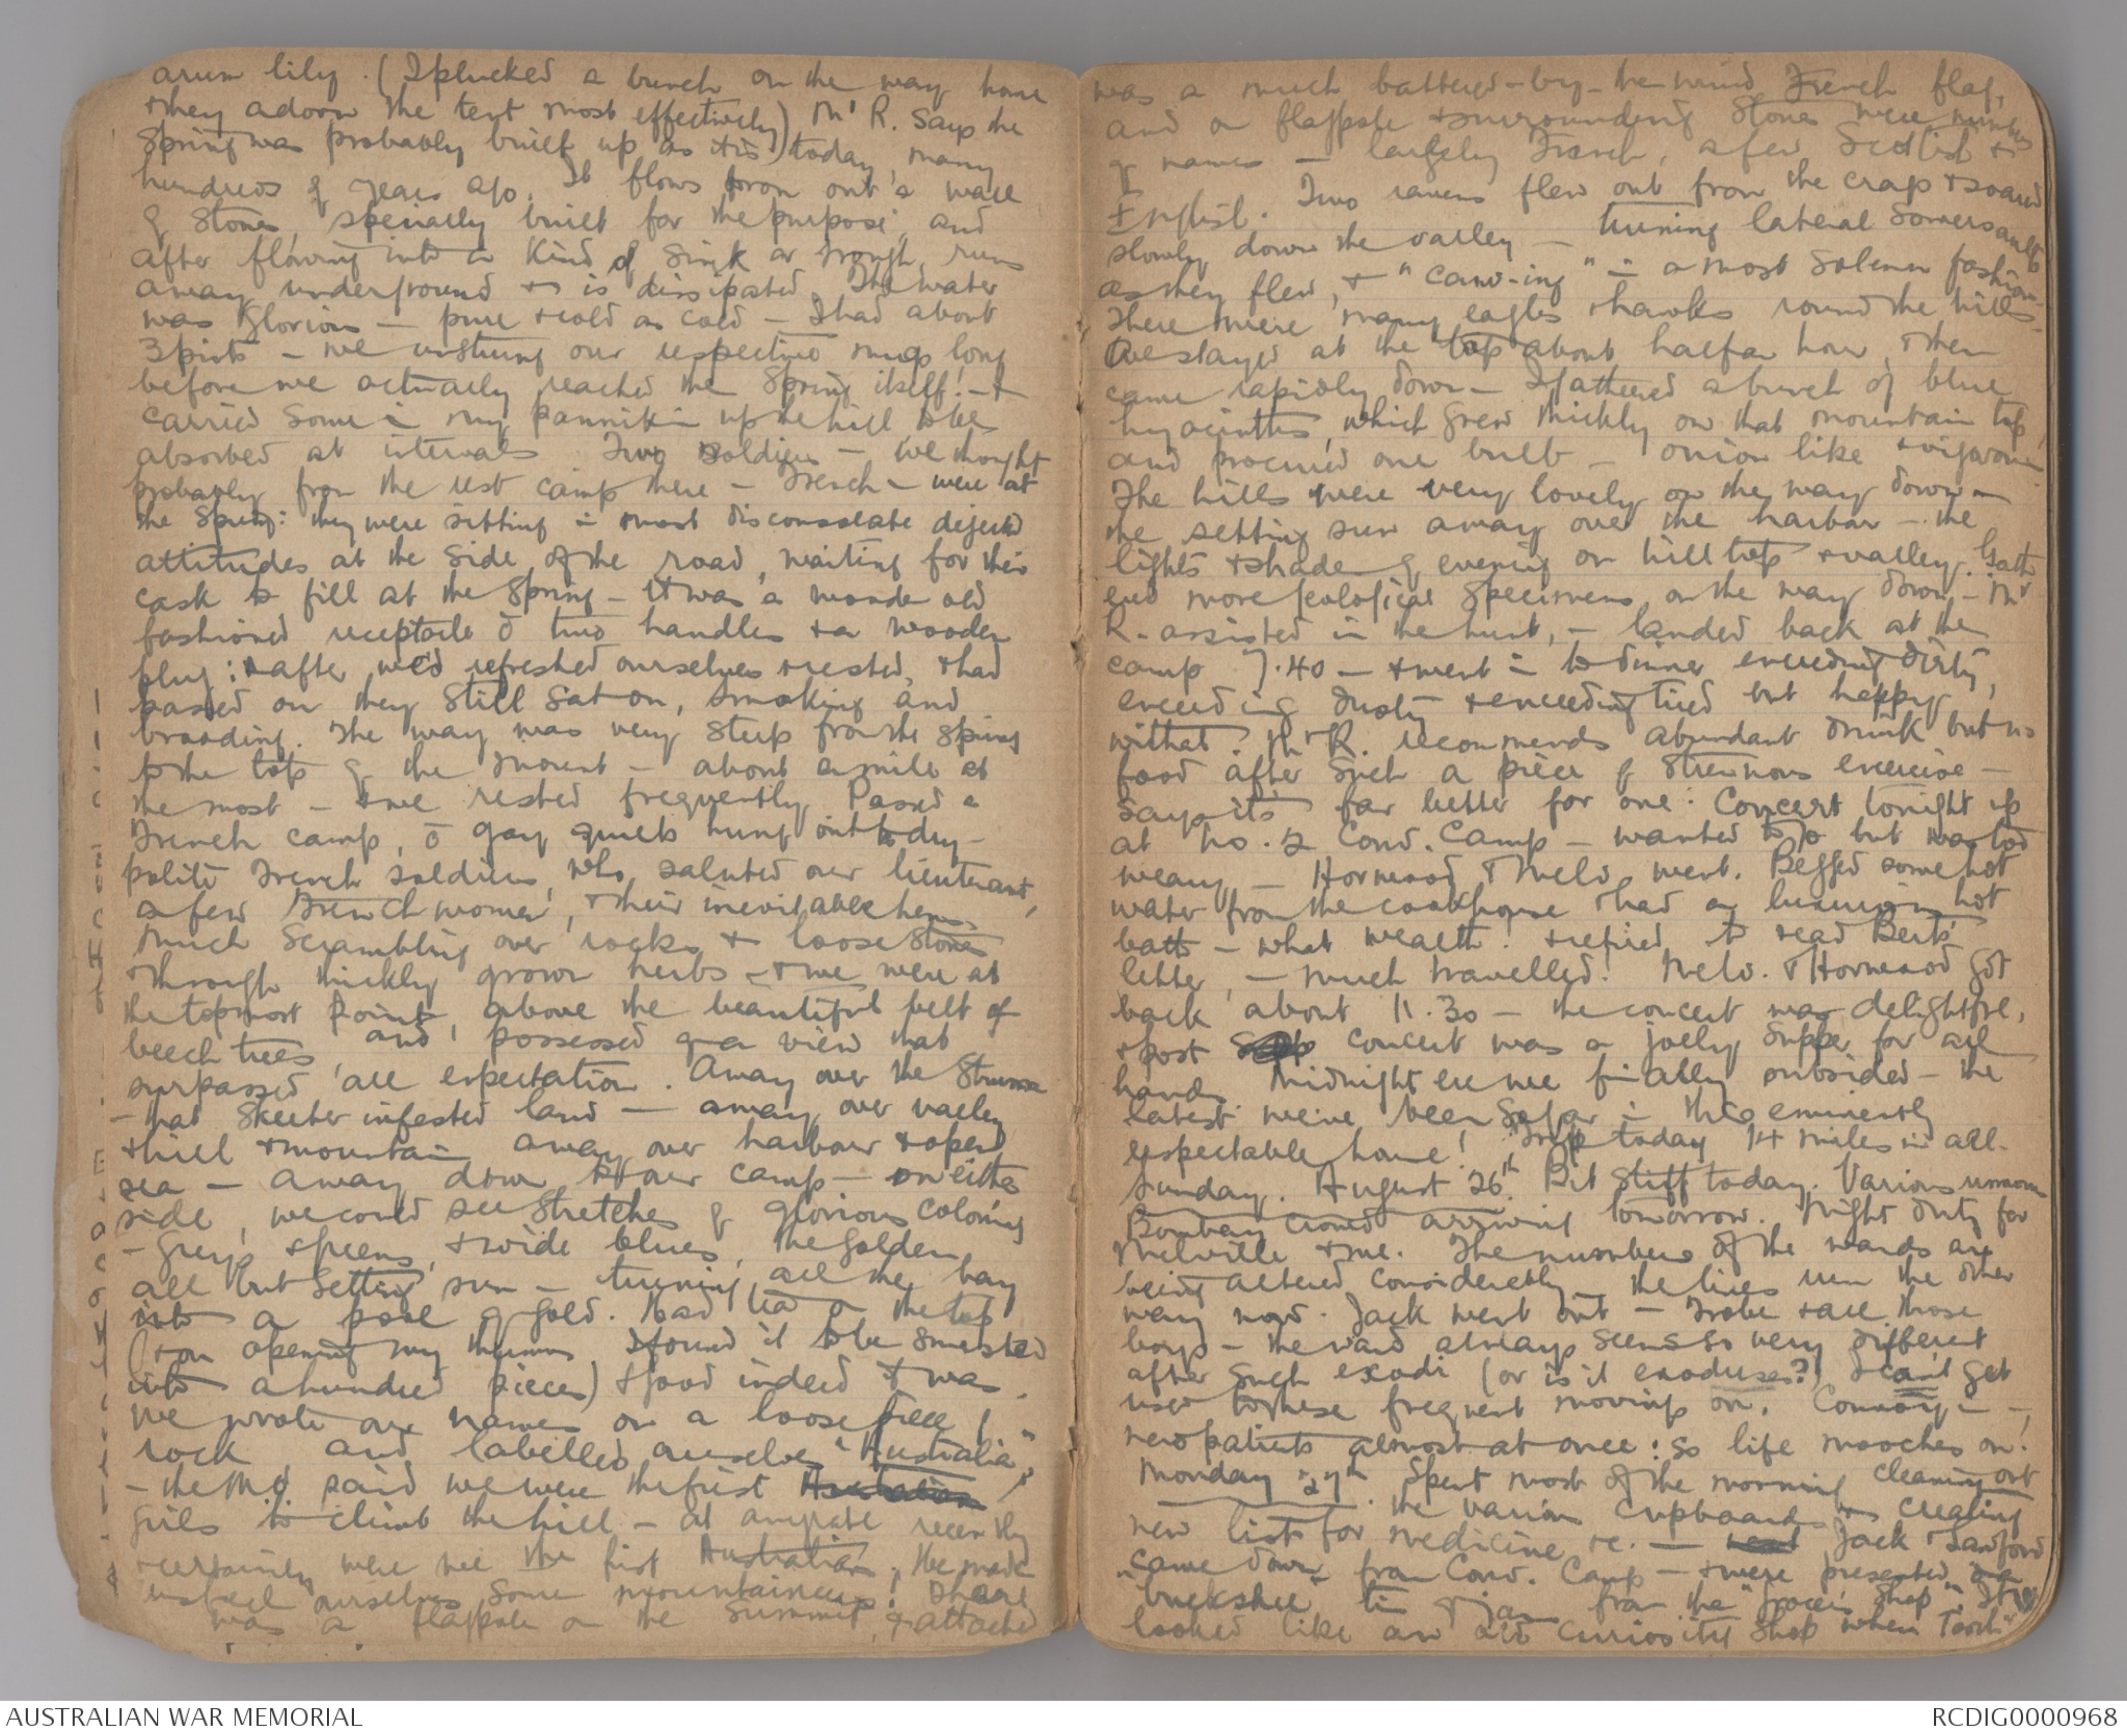 arum lily. (I plucked a bunch on the way home
& they adorn the tent most effectively) Mr R. says the
Spring was probably built up as it is today, many
hundreds of years ago. It flows from out a wall
of stones, specially built for the purpose, and
after flowing into a kind of sink or trough, runs
away underground & is dissipated. The water
was glorious – pure & cold as cold – I had about
3 pints – we unstrung our respective mugs long
before we actually reached the Spring itself! – &
carried some in my pannikin up the hill to be
absorbed at intervals. Two soldiers – we thought
probably from the rest camp there – French – were at
the Spring: they were sitting in most disconsolate dejected
attitudes at the side of the road, waiting for their
cask to fill at the Spring – it was a wonde old
fashioned receptacle c̄ two handles & a wooden
plug: & after we'd refreshed ourselves & rested, & had
passed on they still sat on, smoking and
brooding. The way was very steep from the spring
to the top of the mount – about a mile at
the most – & we rested frequently. Passed a
French camp, c̄ gay quilts hung out to dry –
polite French soldiers, who saluted our lieutenant,
a few French women, & their inevitable hens.
Much scrambling over rocks & loose stones
& through thickly grown herbs – & we were at
the topmost point, above the beautiful belt of
beech trees, and possessed of a view that
surpassed all expectation. Away over the Struma
– that skeeter infested land – away over valley
& hill & mountain away over harbour & open
sea – away down to our camp – on either
side, we could see stretches of glorious coloring
– greys & greens, & wide blues, the golden
all but setting sun – turning all the bay
into a pool of gold. Had tea on the top
(& on opening my thermos I found it to be smashed
into a hundred pieces) & good indeed it was.
We wrote our names on a loose piece of
rock and labelled ourselves "Australia",
– the MO said we were the first Australian
girls to climb the hill – at any rate recently
& certainly were we the first Australians. We made
ourselves some mountaineers! There
was a flagpole on the summit, & attached
was a much battered-by-the-wind French flag,
and on flagpole & surrounding stones were numbers
of names – largely French, a few Scottish &
English. Two ravens flew out from the crags & soared
slowly down the valley – turning lateral somersaults
as they flew, & "caw-ing" in a most solemn fashion.
There were many eagles & hawks round the hills.
We stayed at the top about half an hour, & then
came rapidly down – I gathered a bunch of blue
hyacinths, which grew thickly on that mountain top,
and procured one bulb – onion like & vigorous
The hills were very lovely on the way down –
the setting sun away over the harbor – the
lights & shades of evening on hill top & valley. Gath
ered more geological specimens on the way down – Mr
R. assisted in the hunt, – landed back at the
camp 7.40 – & went in to dinner exceeding dirty,
exceeding dusty & exceeding tired but happy
withal. Mr R. recommends abundant drink but no
food after such a piece of strenuous exercise –
says its far better for one: Concert tonight up
at No. 2 Conv. Camp – wanted to go but was too
weary – Horwood & Melv. went. Begged some hot
water from the cookhouse & had a luxurious hot
bath – what wealth! & retired to read Bert's
letter, – much travelled! Melv. & Horwood got
back about 11.30 – the concert was delightful,
& post concert was a jolly supper for all
hands. Midnight ere we finally subsided – the
latest we've been so far in this eminently
respectable home! Trip today 14 miles in all.
Sunday. August 26th. Bit stiff today. Various rumours
Bombay crowd arriving tomorrow. Night duty for
Melville & me. The numbers of the wards are
being altered considerably – the lines run the other
way now. Jack went out – & all those
boys – the ward always seems so very different
after such exodi (or is it exoduses?) I can't get
used to these frequent movings on. Convoy in –
new patients almost at once: so life mooches on!
Monday "27th". Spent most of the morning cleaning out
the various cupboards & creating
new lists for medicine &c. – Jack & Sandford
came down from Conv. Camp – & were presented c̄ a
"buckshee" tin of jam from the "grocer's shop". It
looked like an old curiosity shop when